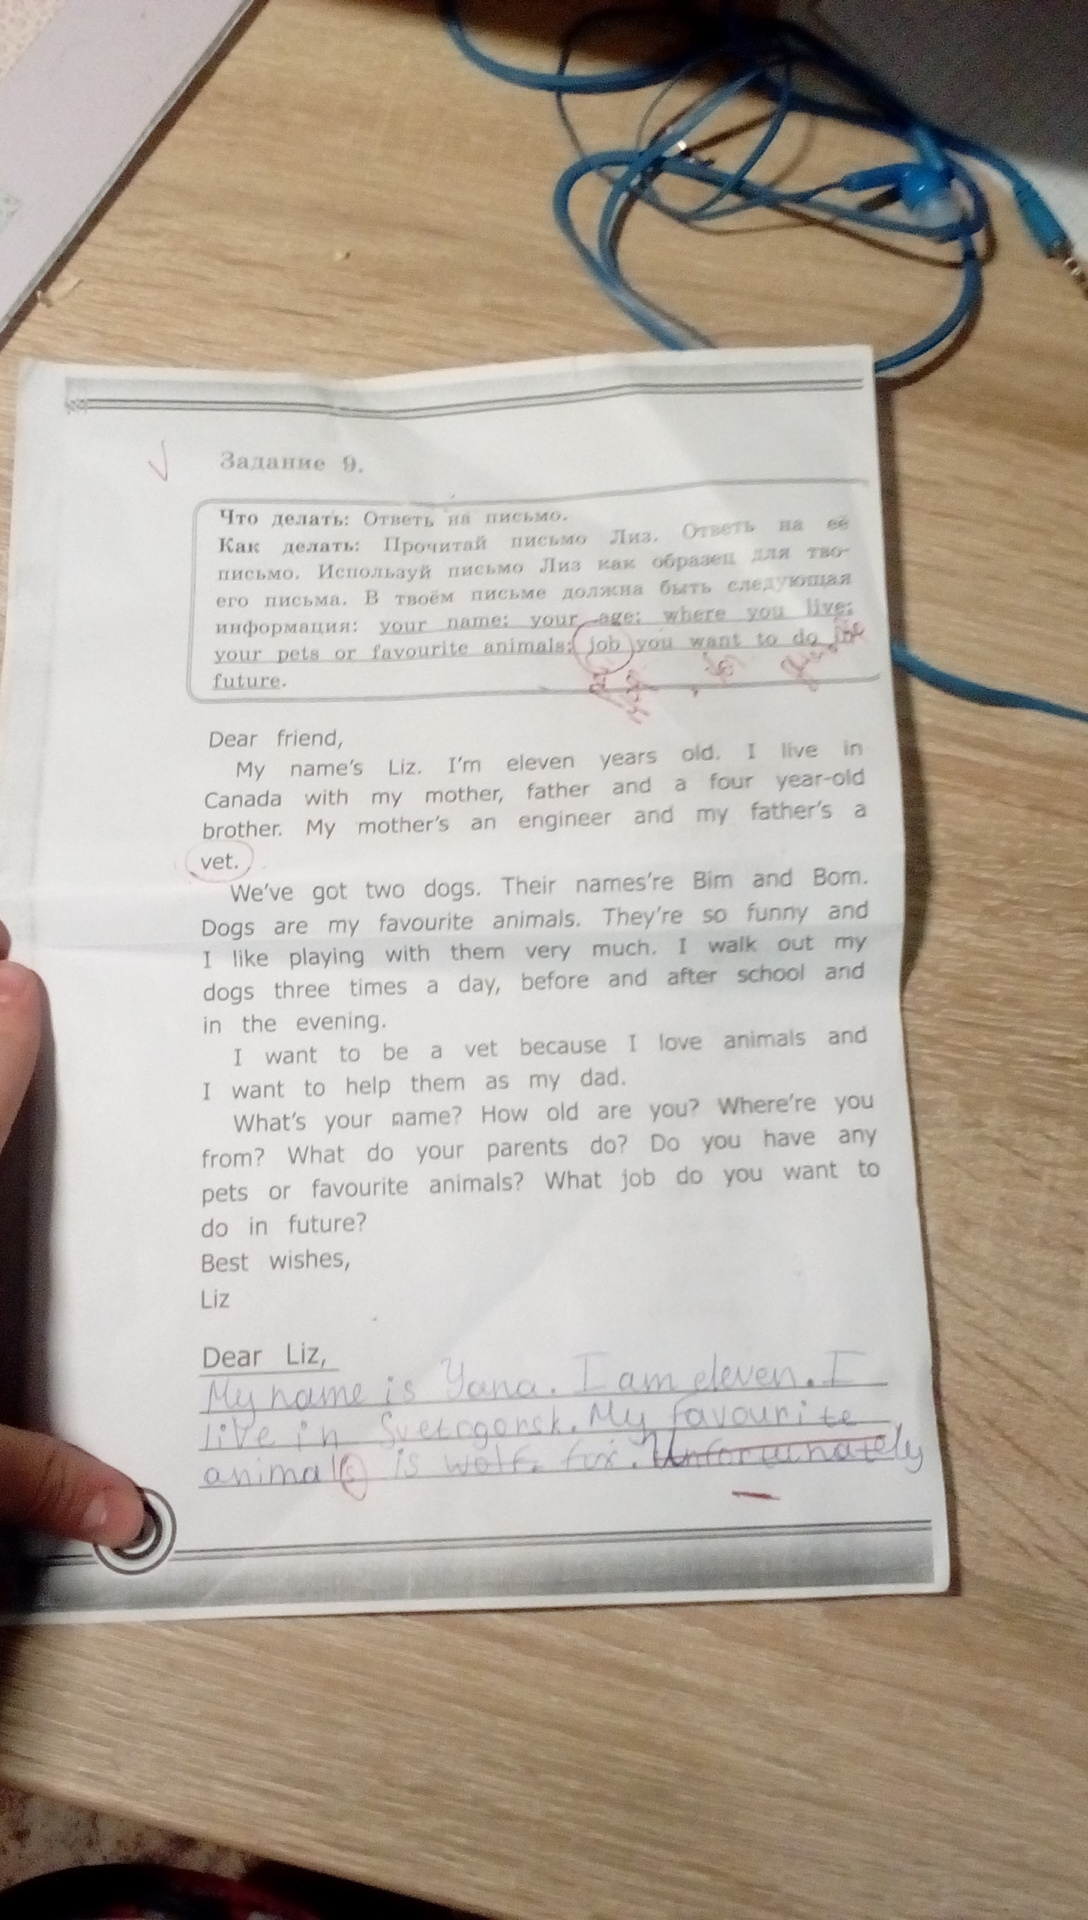 Задание 9.
Что делать: Ответь на письмо.
Как делать: Прочитай письмо Лиз. Ответь на её
письмо. Используй письмо Лиз как образец для тво-
его письма. В твоём письме должна быть следующая
информация: your name; your age; where you live;
your pets or favourite animals; job you want to do in
future.
Dear friend,
My name's Liz. I'm eleven years old. I live in
Canada with my mother, father and a four year-old
brother. My mother's an engineer and my father's a
vet.
We've got two dogs. Their names're Bim and Bom.
Dogs are my favourite animals. They're so funny and
I like playing with them very much. I walk out my
dogs three times a day, before and after school and
in the evening.
I want to be a vet because I love animals and
I want to help them as my dad.
What's your name? How old are you? Where're you
from? What do your parents do? Do you have any
pets or favourite animals? What job do you want to
do in future?
Best wishes,
Liz
Dear Liz,
My name is Yana. I am eleven. I
live in Svetogorsk. My favourite
animals is wolf, fox. Unfortunately